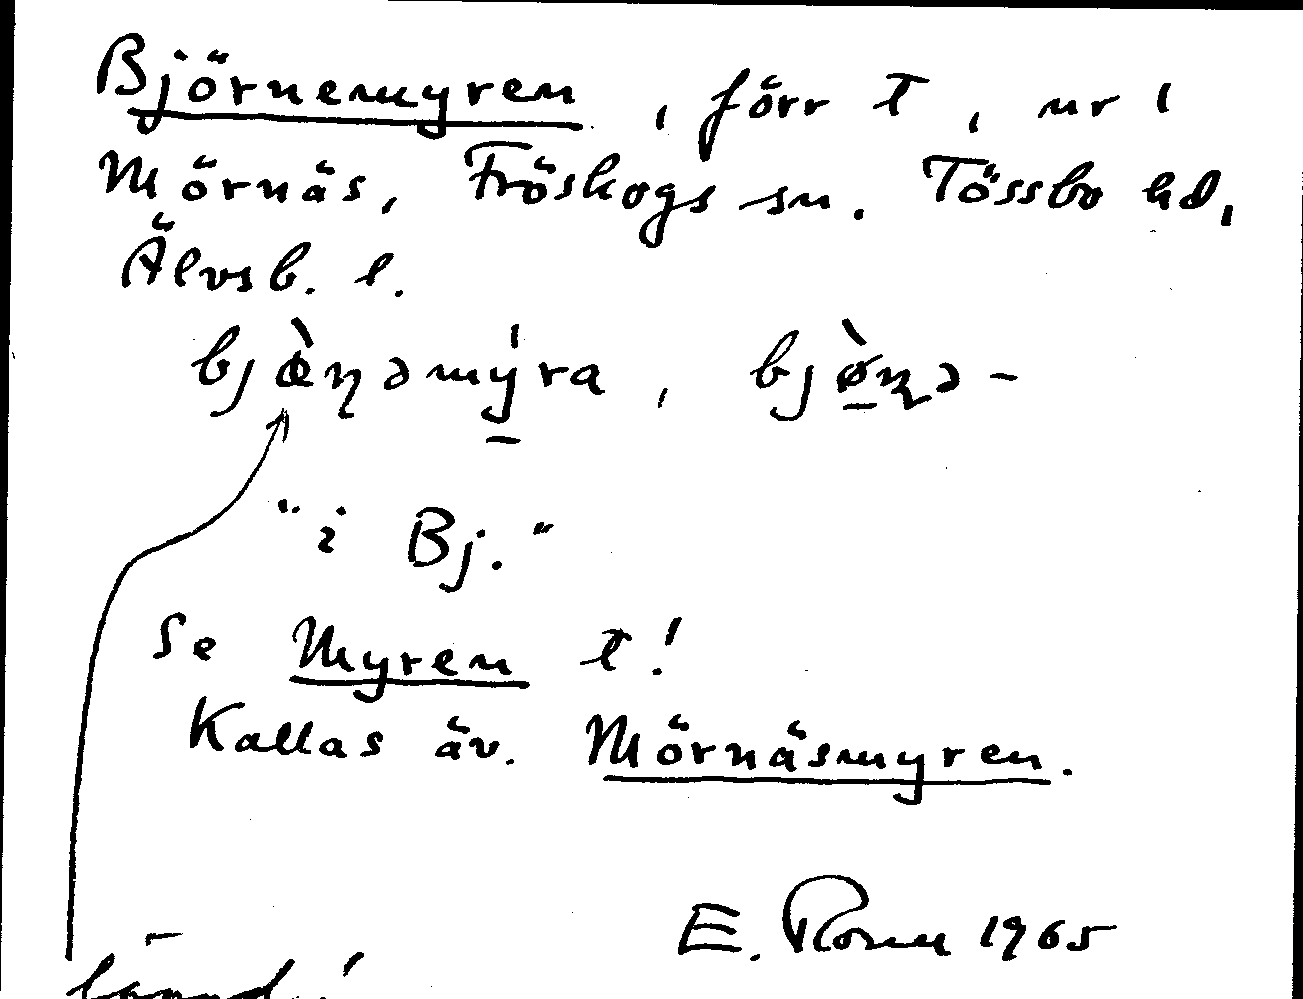 Björnemyren, förr T, nr 1
Mörnäs, Fröskogs sn. Tössbo hd,
Älvsb. l.
bjœ̀ɳəmý̠ra, bjø̠̀ɳə-
"i Bj."
Se Myren t!
Kallas äv. Mörnäsmyren.
E. 1965